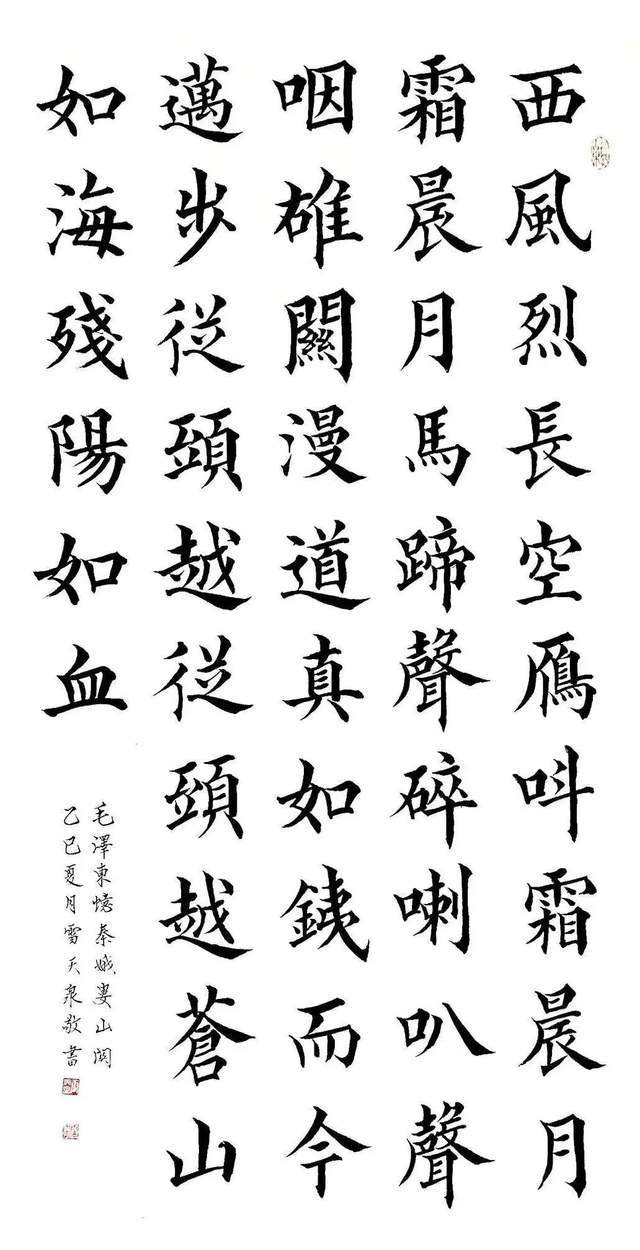 西風烈長空鴈呌霜晨月
霜晨月馬蹄聲碎喇叭聲
咽雄關漫道真如銕而今
邁步從頭越從頭越蒼山
如海殘陽如血
毛澤東憶秦娥婁山関
乙巳夏月雪天泉敬書